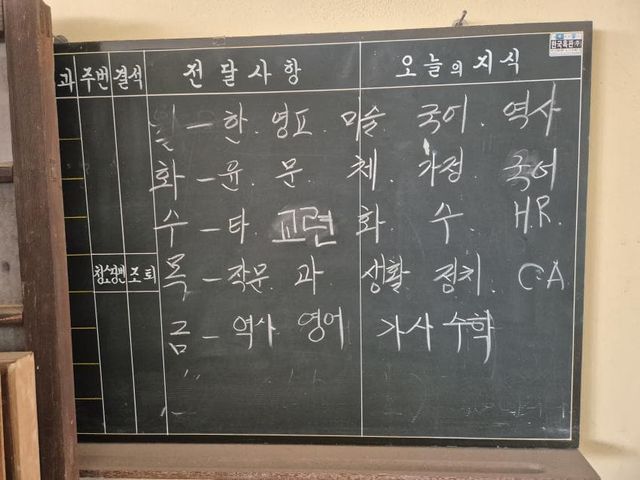 한국흑판(주)
과 주번 결석 전달사항 오늘의 지식
월 - 한. 영고. 미술 국어. 역사
화 - 윤. 문. 체. 가정. 국어
수 - 타. 교련 화. 수. H.R.
청소당번 조퇴 목 - 작문. 과 생활 정치. C.A
금 - 역사 영어 가사 수학